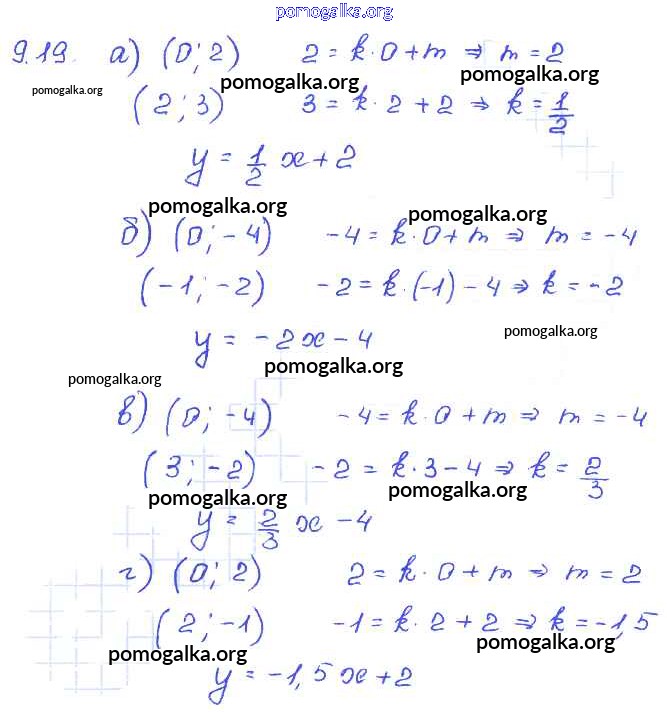 pomogalka.org
9.19. а) (0; 2) 2 = k · 0 + m ⇒ m = 2
pomogalka.org pomogalka.org pomogalka.org
(2; 3) 3 = k · 2 + 2 ⇒ k = 1/2
y = 1/2 x + 2
pomogalka.org pomogalka.org
б) (0; -4) -4 = k · 0 + m ⇒ m = -4
(-1; -2) -2 = k · (-1) - 4 ⇒ k = -2
y = -2x - 4 pomogalka.org
pomogalka.org pomogalka.org
в) (0; -4) -4 = k · 0 + m ⇒ m = -4
(3; -2) -2 = k · 3 - 4 ⇒ k = 2/3
pomogalka.org pomogalka.org
y = 2/3 x - 4
г) (0; 2) 2 = k · 0 + m ⇒ m = 2
(2; -1) -1 = k · 2 + 2 ⇒ k = -1,5
pomogalka.org pomogalka.org
y = -1,5x + 2